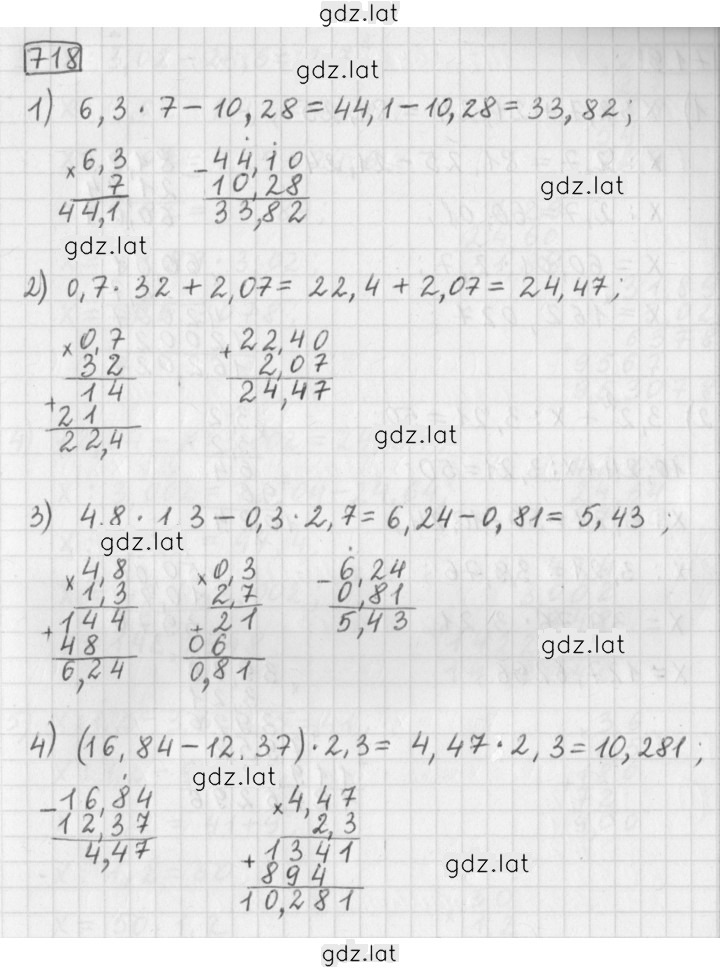 gdz.lat
718
gdz.lat
1) 6,3 · 7 − 10,28 = 44,1 − 10,28 = 33,82;
× 6,3 − 44,10
7 10,28 gdz.lat
44,1 33,82
gdz.lat
2) 0,7 · 32 + 2,07 = 22,4 + 2,07 = 24,47;
× 0,7 + 22,40
32 2,07
+ 14 24,47
21
22,4 gdz.lat
3) 4.8 · 1 3 − 0,3 · 2,7 = 6,24 − 0,81 = 5,43;
gdz.lat
× 4,8 × 0,3 − 6,24
1,3 2,7 0,81
+ 144 + 21 5,43
48 06 gdz.lat
6,24 0,81
4) (16,84 − 12,37) · 2,3 = 4,47 · 2,3 = 10,281;
gdz.lat
− 16,84 × 4,47
12,37 2,3
4,47 + 1341
894 gdz.lat
10,281
gdz.lat